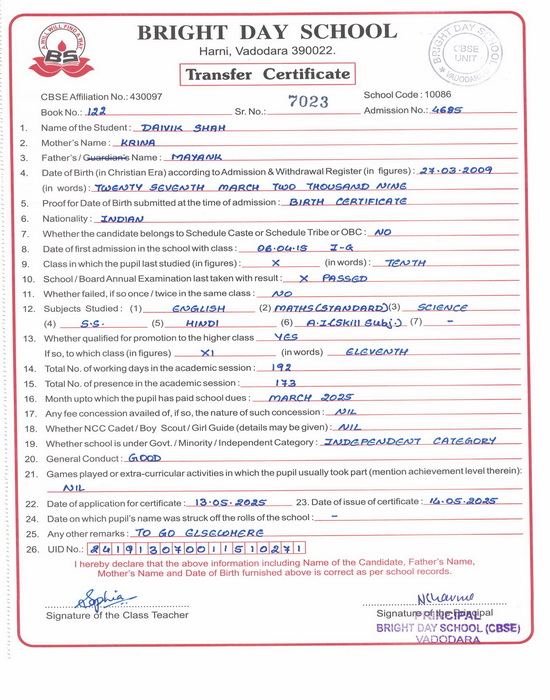 A WILL WILL FIND A WAY
BS
BRIGHT DAY SCHOOL
Harni, Vadodara 390022.
Transfer Certificate
BRIGHT DAY SCHOOL
CBSE
UNIT
VADODARA
CBSE Affiliation No.: 430097
School Code : 10086
Book No.: 122
Sr. No.: 7023
Admission No.: 4685
1. Name of the Student : DAIVIK SHAH
2. Mother's Name : KRINA
3. Father's / Guardian's Name : MAYANK
4. Date of Birth (in Christian Era) according to Admission & Withdrawal Register (in figures) : 27-03-2009
(in words) : TWENTY SEVENTH MARCH TWO THOUSAND NINE
5. Proof for Date of Birth submitted at the time of admission : BIRTH CERTIFICATE
6. Nationality : INDIAN
7. Whether the candidate belongs to Schedule Caste or Schedule Tribe or OBC : NO
8. Date of first admission in the school with class : 06-04-15 I-G
9. Class in which the pupil last studied (in figures) : X (in words) : TENTH
10. School / Board Annual Examination last taken with result : X PASSED
11. Whether failed, if so once / twice in the same class : NO
12. Subjects Studied : (1) ENGLISH (2) MATHS(STANDARD) (3) SCIENCE
(4) S.S. (5) HINDI (6) A.I (Skill Subj.) (7) -
13. Whether qualified for promotion to the higher class YES
If so, to which class (in figures) XI (in words) ELEVENTH
14. Total No. of working days in the academic session : 192
15. Total No. of presence in the academic session : 173
16. Month upto which the pupil has paid school dues : MARCH 2025
17. Any fee concession availed of, if so, the nature of such concession : NIL
18. Whether NCC Cadet / Boy Scout / Girl Guide (details may be given) : NIL
19. Whether school is under Govt. / Minority / Independent Category : INDEPENDENT CATEGORY
20. General Conduct : GOOD
21. Games played or extra-curricular activities in which the pupil usually took part (mention achievement level therein):
NIL
22. Date of application for certificate : 13-05-2025 23. Date of issue of certificate : 14-05-2025
24. Date on which pupil's name was struck off the rolls of the school : -
25. Any other remarks : TO GO ELSEWHERE
26. UID No.: 241913070011510271
I hereby declare that the above information including Name of the Candidate, Father's Name,
Mother's Name and Date of Birth furnished above is correct as per school records.
Sophia
Signature of the Class Teacher
Signature of the Principal
PRINCIPAL
BRIGHT DAY SCHOOL (CBSE)
VADODARA